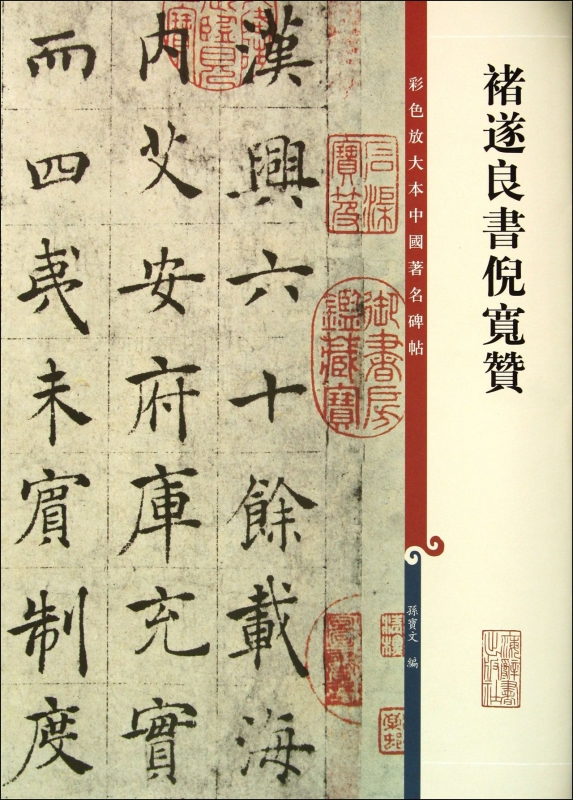 褚遂良書倪寬贊
彩色放大本中國著名碑帖
孫寶文 編
漢興六十餘載海
內艾安府庫充實
而四夷未賓制度
御書房鑑藏寶
石渠寶笈
海辭書出版社